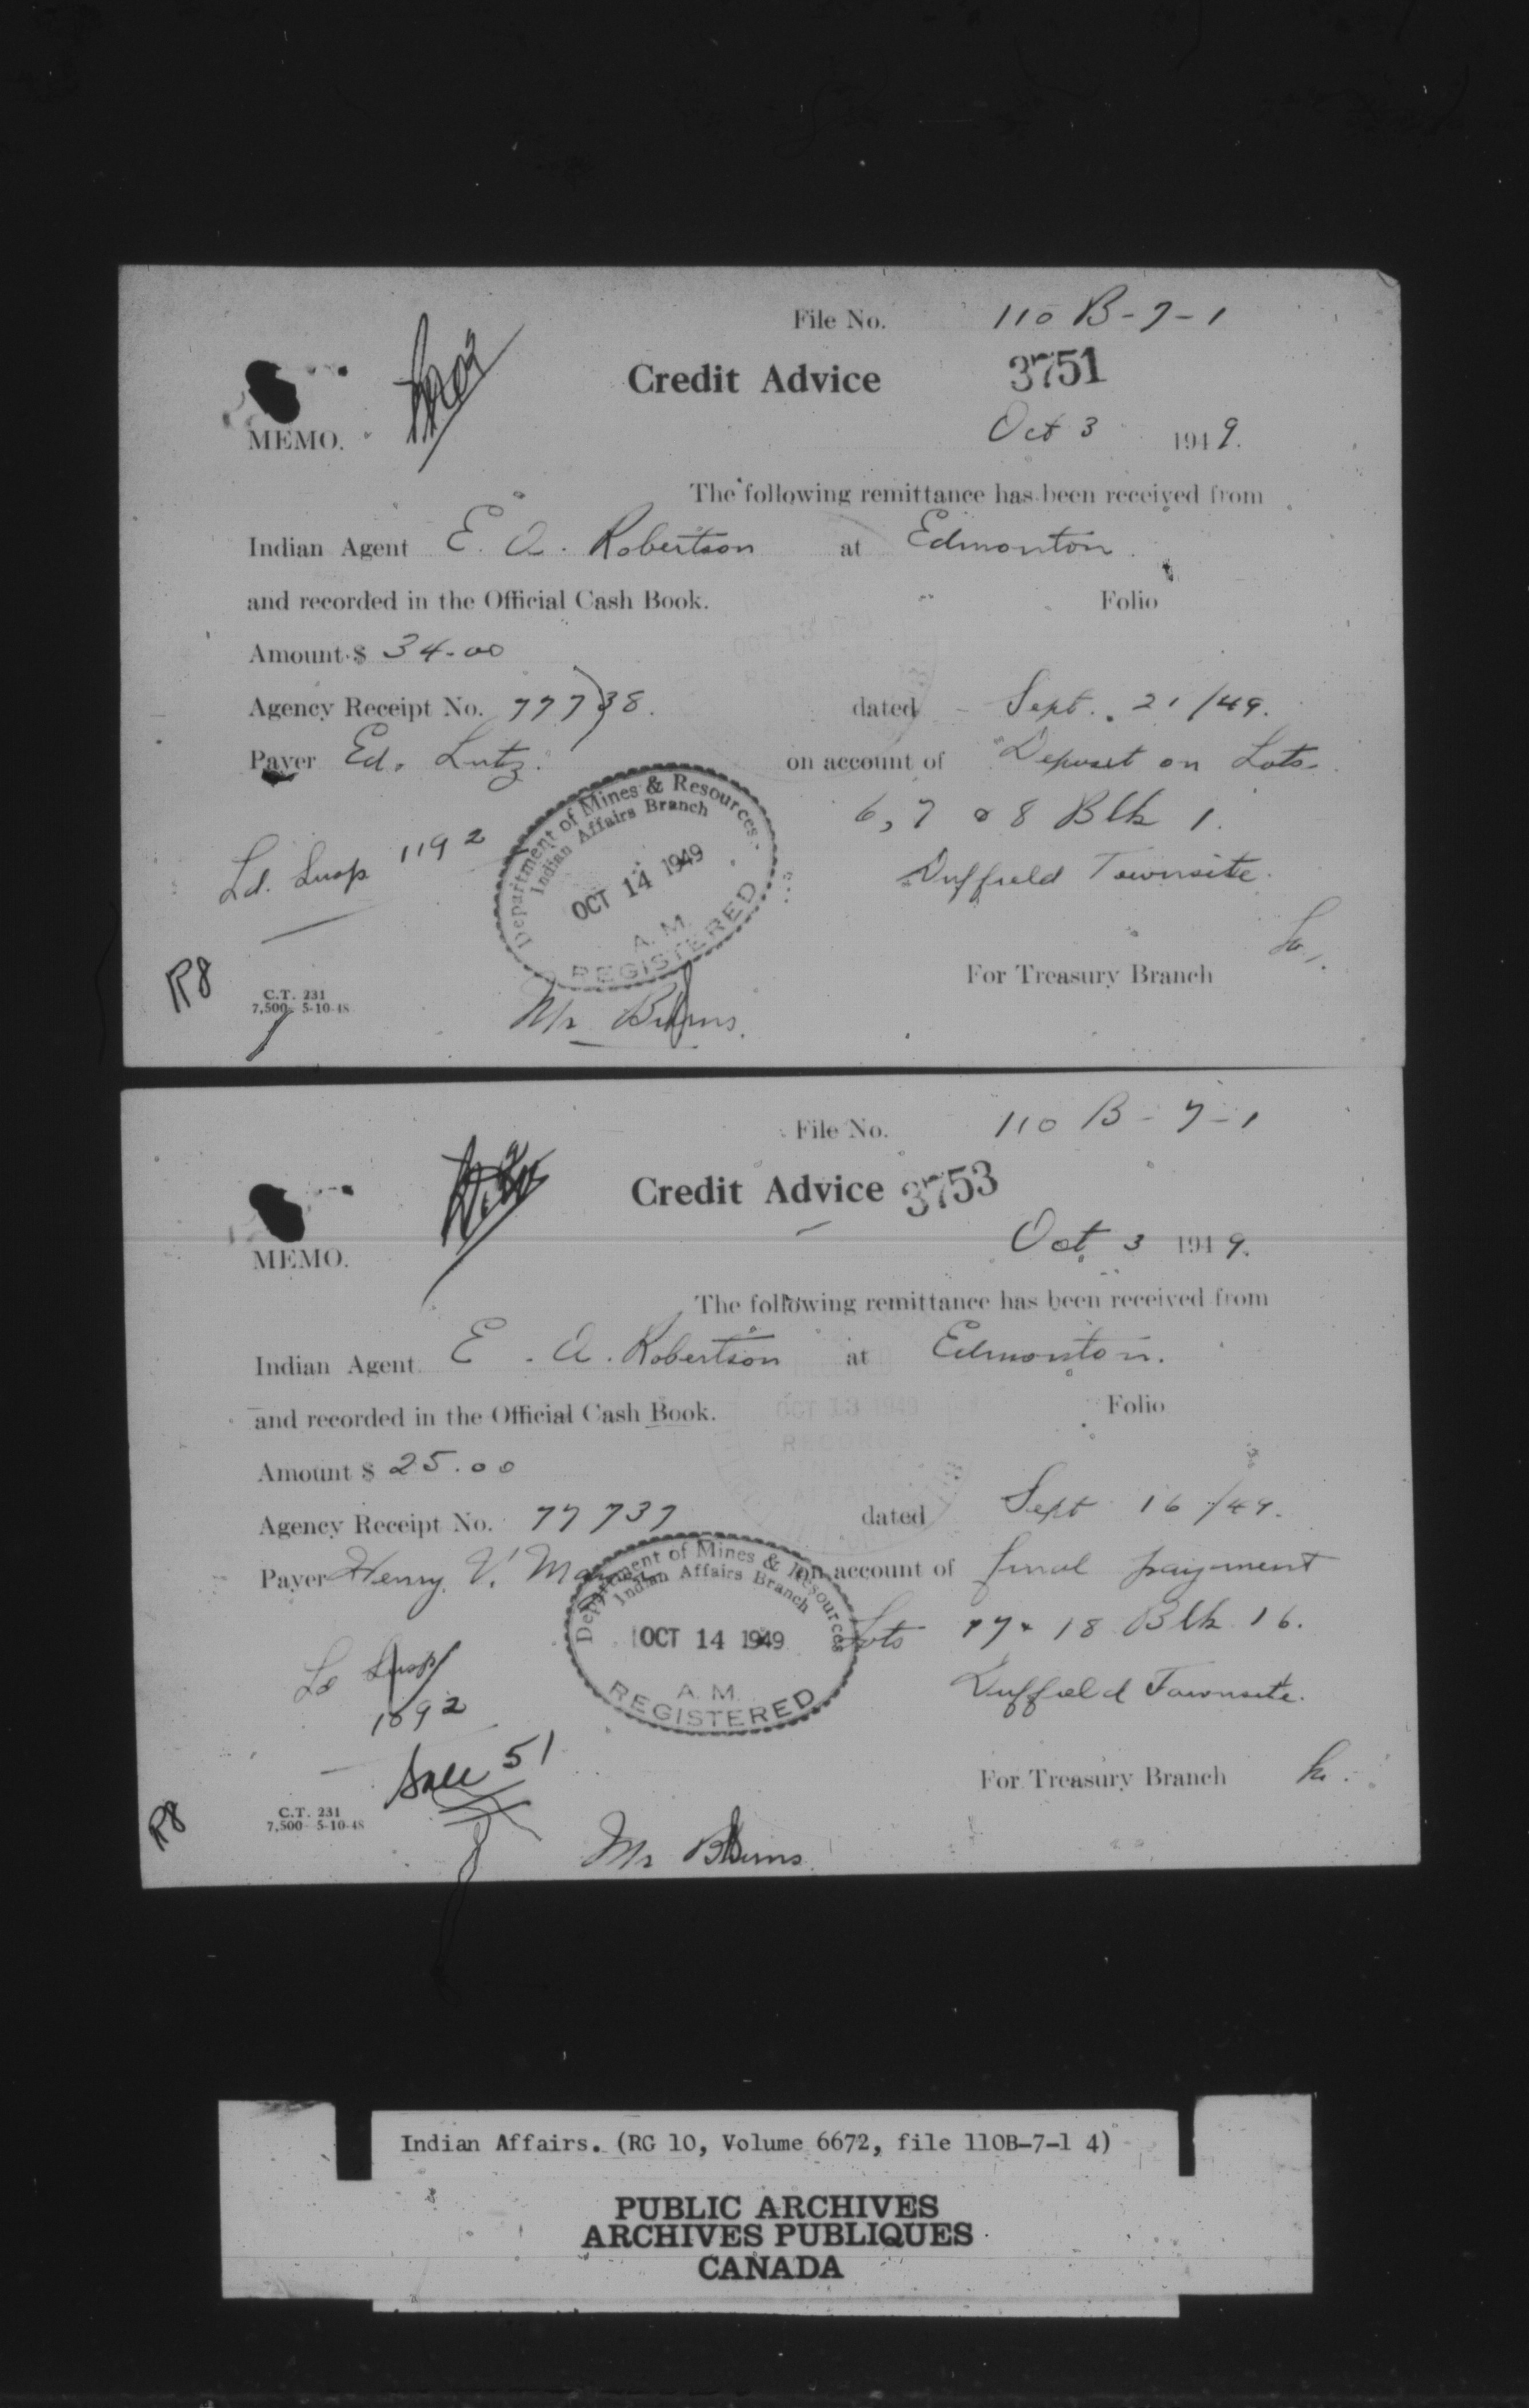 File No. 110 B-7-1
Credit Advice 3751
MEMO.
Oct 3 1949.
The following remittance has been received from
Indian Agent E. A. Robertson at Edmonton.
and recorded in the Official Cash Book. Folio
Amount $ 34.00
Agency Receipt No. 77738. dated Sept. 21/49.
Payer Ed. Lutz. on account of Deposit on Lots
6, 7 & 8 Blk 1.
Ld. Susp 1192
Duffield Townsite.
Department of Mines & Resources
Indian Affairs Branch
OCT 14 1949
A. M.
REGISTERED
For Treasury Branch
R8
C.T. 231
7,500- 5-10-48
Mr Burns.
File No. 110 B-7-1
Credit Advice 3753
MEMO.
Oct. 3 1949.
The following remittance has been received from
Indian Agent E. A. Robertson at Edmonton.
and recorded in the Official Cash Book. Folio
OCT 13 1949
RECORDS
Amount $ 25.00
Agency Receipt No. 77737 dated Sept 16/49.
Payer Henry V. on account of final payment
Lots 17 & 18 Blk 16.
Duffield Townsite.
Department of Mines & Resources
Indian Affairs Branch
OCT 14 1949
A. M.
REGISTERED
Ld Susp
1092
Sale 51
For Treasury Branch
R8
C.T. 231
7,500- 5-10-48
Mr Burns
Indian Affairs. (RG 10, Volume 6672, file 110B-7-1 4)
PUBLIC ARCHIVES
ARCHIVES PUBLIQUES
CANADA